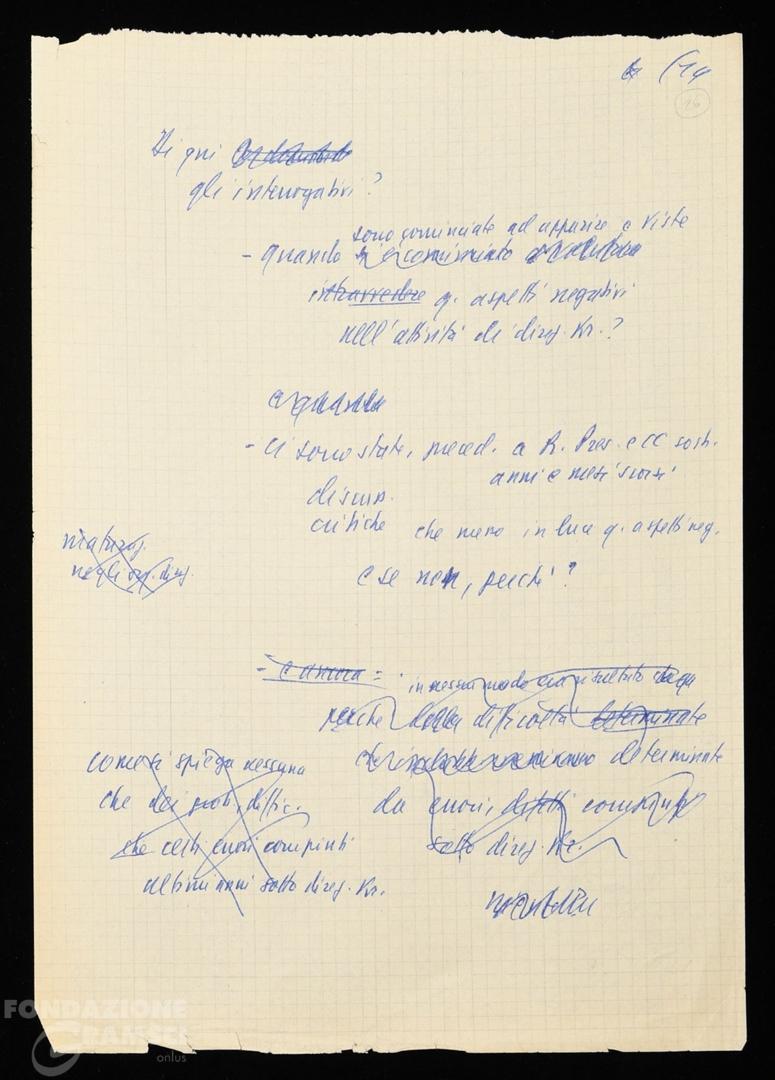 (14
16
Di qui
gli interrogativi?
sono cominciate ad apparire e viste
- quando si è cominciato
intravvedere q. aspetti negativi
nell'attività di direz. Kr.?
- ci sono state, preced. a R. Pres. e CC sost.
anni e mesi scorsi
discuss.
critiche che mess in luce q. aspetti neg.
e se non, perché?
negli direz.
- e ancora =
in nessun modo era risultato
perché difficoltà determinate
determinate
da errori, difetti compiuti
sotto direz. Kr.
come si spiega nessuna
che dei prob., diffic.
che certi errori compiuti
ultimi anni sotto direz. Kr.
FONDAZIONE
GRAMSCI
onlus